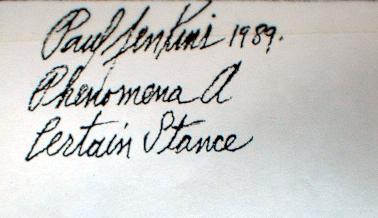 Paul Jenkins 1989.
Phenomena A
Certain Stance